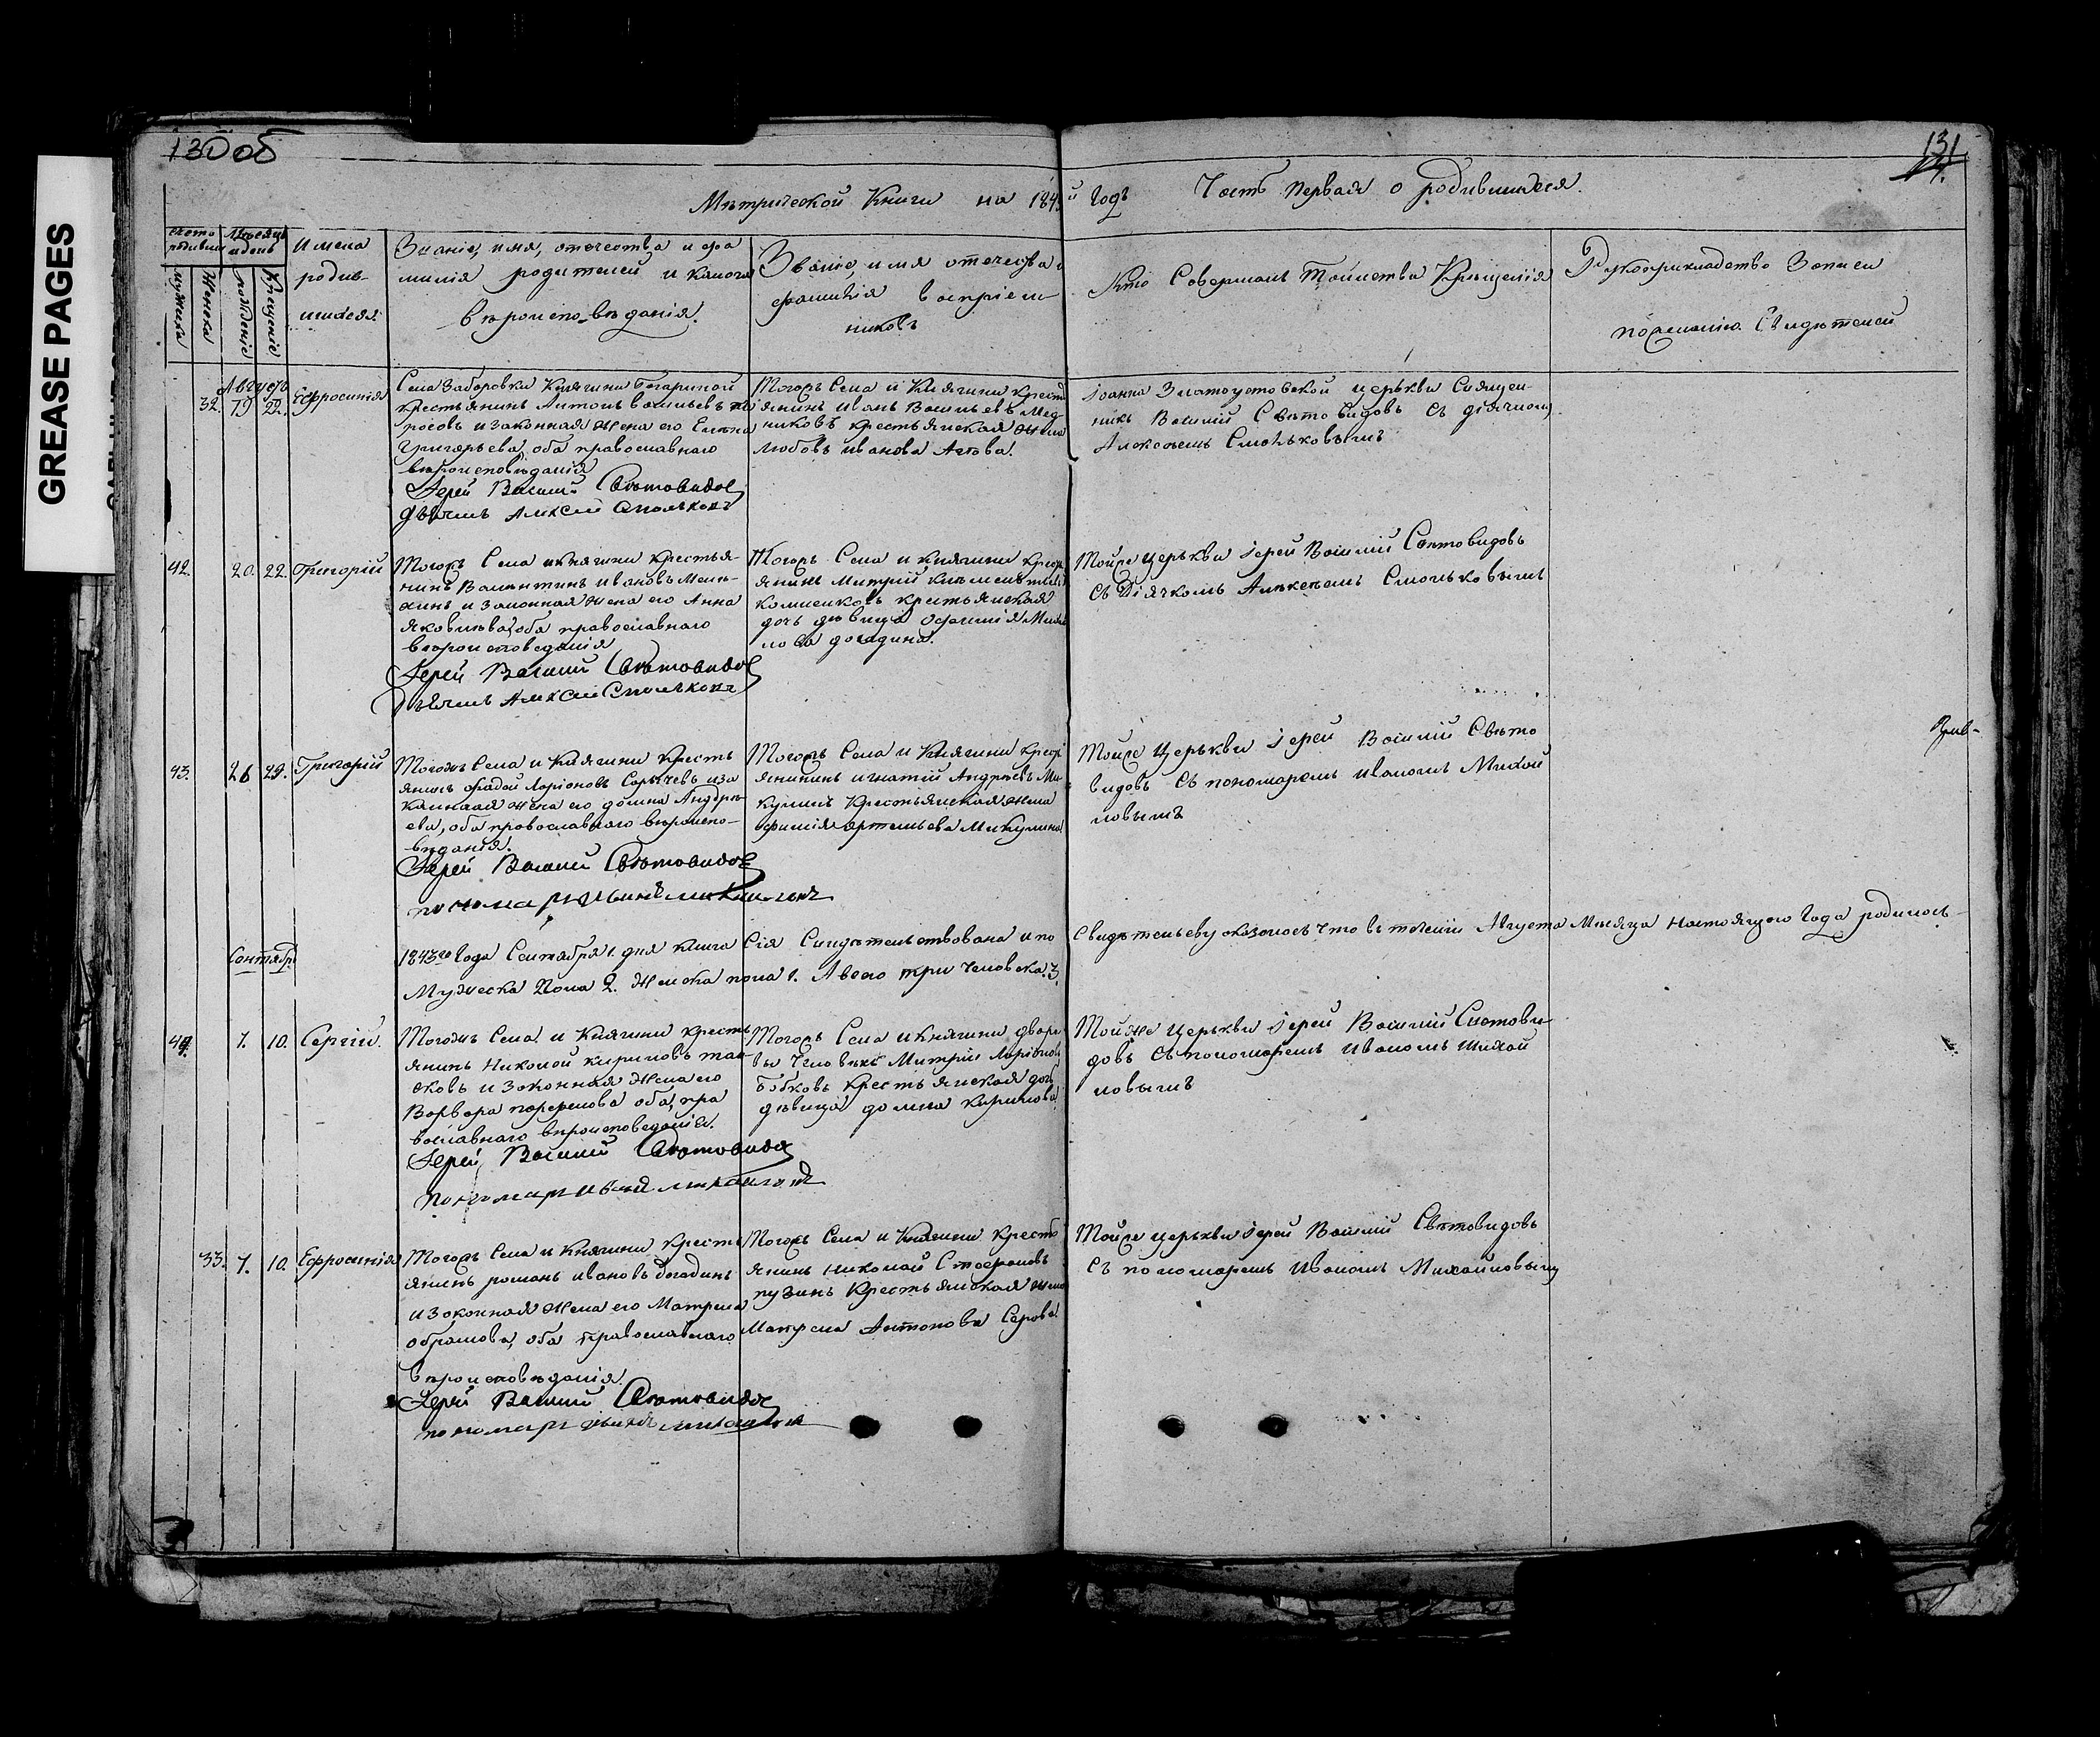 GREASE PAGES
130 об
131
Метрической Книги на 1843й Годъ Часть первая о родившихся.
Счетъ родивши
Мужеска
Женска
Месяцъ и день
рожденіе
Крещеніе
Имена
родив-
шихся.
Званіе, имя, отечества и фа
милія родителей и какого
вероисповеданія.
Званіе, имя отечества и
фамилія воспріем
никовъ
Кто Совершалъ Таинства Крещенія
Рукоприкладство Записи
по желанію Свидетелей
Августъ
32. 19 22. Ефросинія
Села Заборовки Княгини Гагариной
крестьянинъ Антонъ Васильевъ
и законная жена его Елена
Григорьева, оба православнаго
вероисповеданія
Іерей Василій Световидовъ
Дьячекъ Алексей Смольковъ
Тогожъ Села и Княгини крестъ
янинъ Иванъ Васильевъ Мед
никовъ крестьянская жена
Любовь Иванова
Іоанна Златоустовской церькви Священ-
никъ Василій Световидовъ съ діячкомъ
Алексеемъ Смольковымъ
42. 20. 22. Григорій
Тогожъ Села и княгини крестья-
нинъ Валентинъ Ивановъ
и законная жена его Анна
Яковлева, оба православнаго
вероисповеданія
Іерей Василій Световидовъ
Дьячекъ Алексей Смольковъ
Тогожъ Села и Княгини крестъ
янинъ Митрій
крестьянская
дочь девица Офимія
Догадина.
Тойже церькви іерей Василій Световидовъ
съ Діячкомъ Алексеемъ Смольковымъ
43. 26 29. Григорій
Тогожъ Села и Княгини кресть
янинъ Фадей Ларіоновъ Сорычевъ и за
конная жена его Домна Андре
ева, оба православнаго вероиспо-
веданія.
Іерей Василій Световидовъ
пономарь Иванъ Михайловъ
Тогожъ Села и Княгини крестъ
янининъ Игнатій Андреевъ Ми
кулинъ Крестьянская жена
Офимія Артемьева Микулина
Тойже Церькви іерей Василій Свето
видовъ съ пономаремъ Иваномъ Михай
ловымъ
Сентябрь
1843го Года Сентября 1. дня книга Сія Свидетельствована и по Свидетельству оказалось что въ теченіи Августа Месяца Настоящаго Года родилось
Мужеска Пола 2. Женска пола 1. А всего три человека. 3.
44. 7. 10. Сергій.
Тогожъ Села и Княгини кресть
янинъ Николай Кириловъ
и законная жена его
Варвара оба, пра
вославнаго вероисповеданія.
Іерей Василій Световидовъ
пономарь Иванъ Михайловъ
Тогожъ Села и Княгини дворо
вы человекъ Митрій Ларіоновъ
Бобковъ крестьянская дочь
девица Домна Кирилова
Тойже церькви іерей Василій Светови
довъ съ пономаремъ Иваномъ Михай
ловымъ
33. 7. 10. Ефросинія
Тогожъ Села и Княгини кресть
янинъ Романъ Ивановъ Догадинъ
и законная жена его Матрена
Обрамова, оба православнаго
вероисповеданія.
Іерей Василій Световидовъ
пономарь Иванъ Михайловъ
Тогожъ Села и Княгини кресть
янинъ Николай
Пузинъ Крестьянская жена
Матрена Антонова Серова.
Тойже церькви іерей Василій Световидовъ
съ пономаремъ Иваномъ Михайловымъ